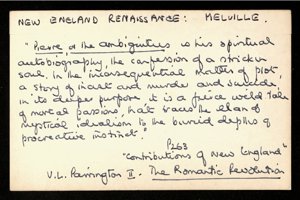 NEW ENGLAND RENAISSANCE: MELVILLE.
"Pierre, or the Ambiguities is his spiritual
autobiography, the confession of a stricken
soul. In the inconsequential matter of plot
a story of and murder and suicide,
in its deeper purpose it is a fierce wild tale
of moral passions, that traces the elan of
mystical idealism to the buried depths of
procreative instinct".
P263
"Contributions of New England"
V.L. Parrington II. The Romantic Revolution